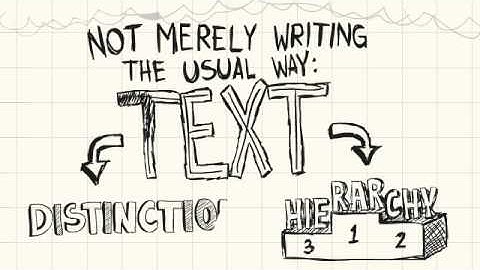 NOT MERELY WRITING
THE USUAL WAY:
TEXT
DISTINCTIO
HIERARCHY
3 1 2